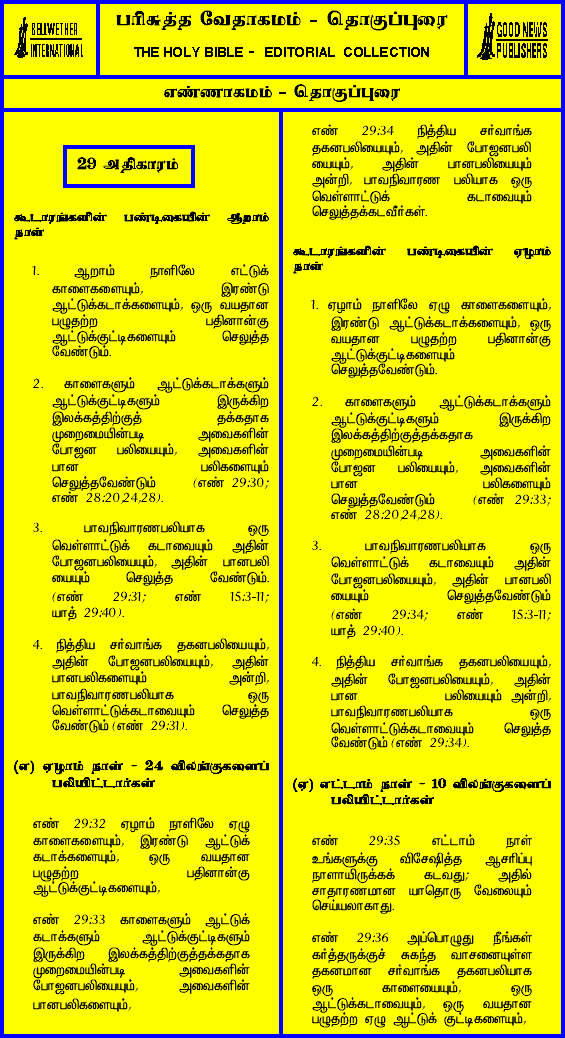 BELLWETHER
INTERNATIONAL
பரிசுத்த வேதாகமம் - தொகுப்புரை
THE HOLY BIBLE - EDITORIAL COLLECTION
GOOD NEWS
PUBLISHERS
எண்ணாகமம் - தொகுப்புரை
29 அதிகாரம்
கூடாரங்களின் பண்டிகையின் ஆறாம்
நாள்
1. ஆறாம் நாளிலே எட்டுக்
காளைகளையும், இரண்டு
ஆட்டுக்கடாக்களையும், ஒரு வயதான
பழுதற்ற பதினான்கு
ஆட்டுக்குட்டிகளையும் செலுத்த
வேண்டும்.
2. காளைகளும் ஆட்டுக்கடாக்களும்
ஆட்டுக்குட்டிகளும் இருக்கிற
இலக்கத்திற்குத் தக்கதாக
முறைமையின்படி அவைகளின்
போஜன பலியையும், அவைகளின்
பான பலிகளையும்
செலுத்தவேண்டும் (எண் 29:30;
எண் 28:20,24,28).
3. பாவநிவாரணபலியாக ஒரு
வெள்ளாட்டுக் கடாவையும் அதின்
போஜனபலியையும், அதின் பானபலி
யையும் செலுத்த வேண்டும்.
(எண் 29:31; எண் 15:3-11;
யாத் 29:40).
4. நித்திய சர்வாங்க தகனபலியையும்,
அதின் போஜனபலியையும், அதின்
பானபலிகளையும் அன்றி,
பாவநிவாரணபலியாக ஒரு
வெள்ளாட்டுக்கடாவையும் செலுத்த
வேண்டும் (எண் 29:31).
(எ) ஏழாம் நாள் - 24 விலங்குகளைப்
பலியிட்டார்கள்
எண் 29:32 ஏழாம் நாளிலே ஏழு
காளைகளையும், இரண்டு ஆட்டுக்
கடாக்களையும், ஒரு வயதான
பழுதற்ற பதினான்கு
ஆட்டுக்குட்டிகளையும்,
எண் 29:33 காளைகளும் ஆட்டுக்
கடாக்களும் ஆட்டுக்குட்டிகளும்
இருக்கிற இலக்கத்திற்குத்தக்கதாக
முறைமையின்படி அவைகளின்
போஜனபலியையும், அவைகளின்
பானபலிகளையும்,
எண் 29:34 நித்திய சர்வாங்க
தகனபலியையும், அதின் போஜனபலி
யையும், அதின் பானபலியையும்
அன்றி, பாவநிவாரண பலியாக ஒரு
வெள்ளாட்டுக் கடாவையும்
செலுத்தக்கடவீர்கள்.
கூடாரங்களின் பண்டிகையின் ஏழாம்
நாள்
1. ஏழாம் நாளிலே ஏழு காளைகளையும்,
இரண்டு ஆட்டுக்கடாக்களையும், ஒரு
வயதான பழுதற்ற பதினான்கு
ஆட்டுக்குட்டிகளையும்
செலுத்தவேண்டும்.
2. காளைகளும் ஆட்டுக்கடாக்களும்
ஆட்டுக்குட்டிகளும் இருக்கிற
இலக்கத்திற்குத்தக்கதாக
முறைமையின்படி அவைகளின்
போஜன பலியையும், அவைகளின்
பான பலிகளையும்
செலுத்தவேண்டும் (எண் 29:33;
எண் 28:20,24,28).
3. பாவநிவாரணபலியாக ஒரு
வெள்ளாட்டுக் கடாவையும் அதின்
போஜனபலியையும், அதின் பானபலி
யையும் செலுத்தவேண்டும்
(எண் 29:34; எண் 15:3-11;
யாத் 29:40).
4. நித்திய சர்வாங்க தகனபலியையும்,
அதின் போஜனபலியையும், அதின்
பான பலியையும் அன்றி,
பாவநிவாரணபலியாக ஒரு
வெள்ளாட்டுக்கடாவையும் செலுத்த
வேண்டும் (எண் 29:34).
(ஏ) எட்டாம் நாள் - 10 விலங்குகளைப்
பலியிட்டார்கள்
எண் 29:35 எட்டாம் நாள்
உங்களுக்கு விசேஷித்த ஆசரிப்பு
நாளாயிருக்கக் கடவது; அதில்
சாதாரணமான யாதொரு வேலையும்
செய்யலாகாது.
எண் 29:36 அப்பொழுது நீங்கள்
கர்த்தருக்குச் சுகந்த வாசனையுள்ள
தகனமான சர்வாங்க தகனபலியாக
ஒரு காளையையும், ஒரு
ஆட்டுக்கடாவையும், ஒரு வயதான
பழுதற்ற ஏழு ஆட்டுக் குட்டிகளையும்,